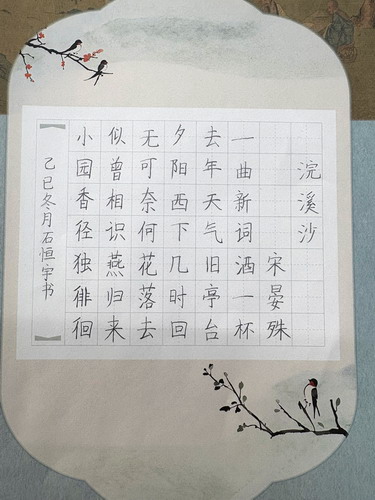 浣溪沙
宋晏殊
一曲新词酒一杯
去年天气旧亭台
夕阳西下几时回
无可奈何花落去
似曾相识燕归来
小园香径独徘徊
乙巳冬月石恒宇书